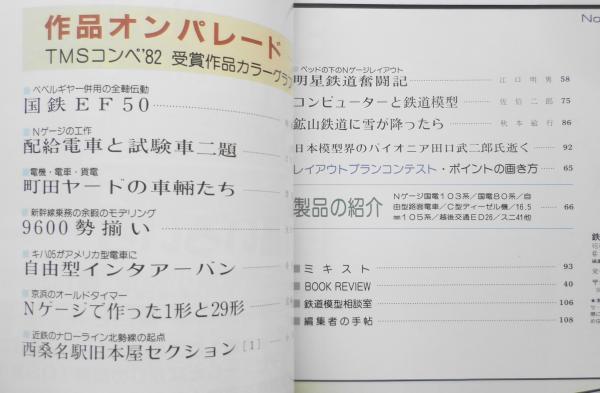 作品オンパレード
TMSコンペ'82 受賞作品カラーグラフ
ベベルギヤー併用の全軸伝動
国鉄EF50
Nゲージの工作
配給電車と試験車二題
電機・電車・貨電
町田ヤードの車輌たち
新幹線乗務の余暇のモデリング
9600勢揃い
キハ05がアメリカ型電車に
自由型インタアーバン
京浜のオールドタイマー
Nゲージで作った1形と29形
近鉄のナローライン北勢線の起点
西桑名駅旧本屋セクション[1]
No
ベッドの下のNゲージレイアウト
明星鉄道奮闘記 江口明男 58
コンピューターと鉄道模型 佐伯二郎 75
鉱山鉄道に雪が降ったら 秋本敏行 86
日本模型界のパイオニア田口武二郎氏逝く 92
レイアウトプランコンテスト・ポイントの画き方 65
製品の紹介
Nゲージ国電103系/国電80系/自
由型路面電車/C型ディーゼル機/16.5
㎜105系/越後交通ED26/スニ41他
66
ミキスト 93
BOOK REVIEW 40
鉄道模型相談室 106
編集者の手帖 108
鉄